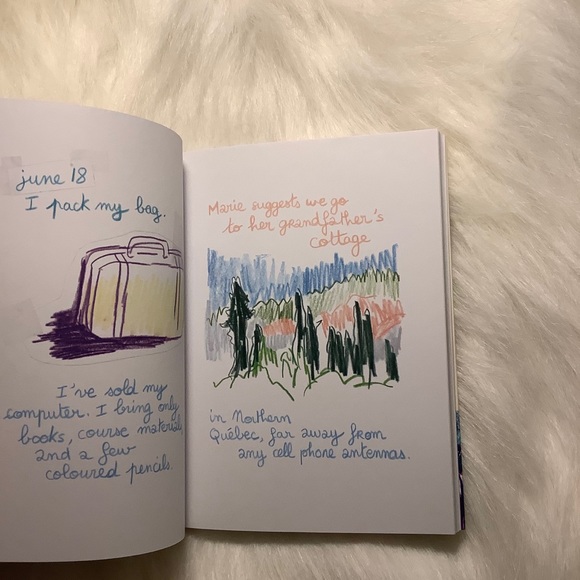 june 18
I pack my bag.
I've sold my
computer. I bring only
books, course materials,
and a few
coloured pencils.
Marie suggests we go
to her grandfather's
cottage
in Northern
Québec, far away from
any cell phone antennas.